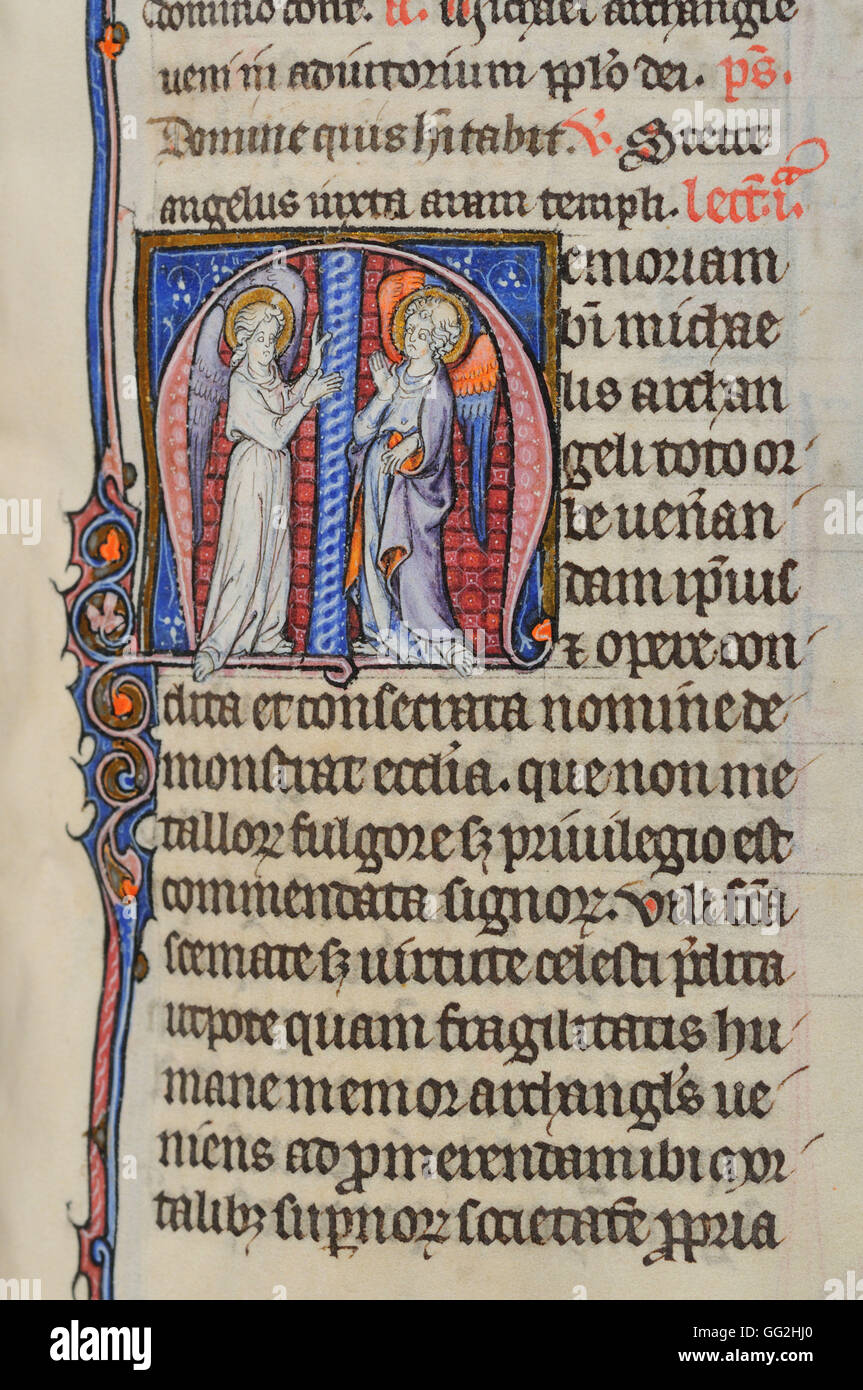 domino cont. a. Michael archangle
veni in adiutorium pplo dei. ps.
Domine quis hitabit. V. Stetit
angelus iuxta aram templi. lect. i.
Memoriam
bi michae
lis archan
geli toto or
be venan
dam ipius
& opere con
dita et consecrata nomine de
monstrat ecclia. que non me
tallorꝝ fulgore sꝫ privilegio est
commendata signorꝝ. Vili fca
scemate sꝫ virtute celesti pdita
utpote quam fragilitatis hu
mane memor archangls ve
niens ad promerendam ibi mor
talibꝫ supnorꝝ societate ppria
alamy
Image ID: GG2HJ0
www.alamy.com